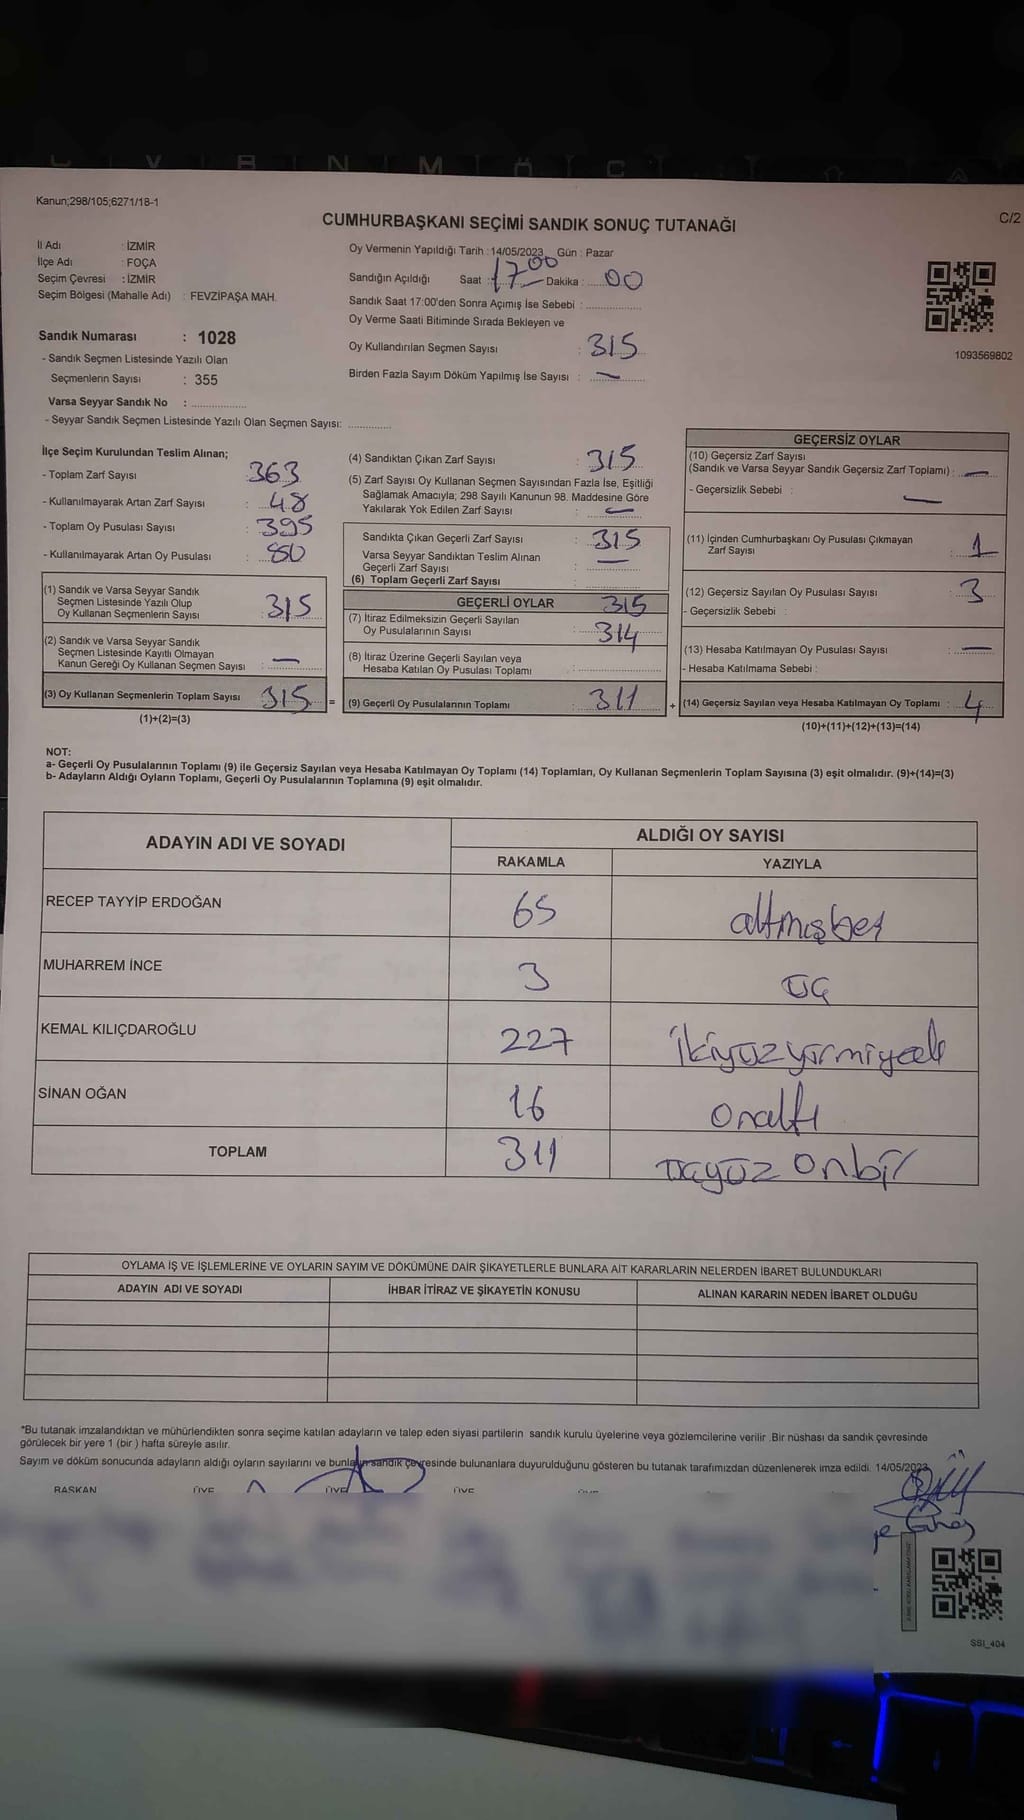 Kanun;298/105;6271/18-1
C/2
CUMHURBAŞKANI SEÇİMİ SANDIK SONUÇ TUTANAĞI
İl Adı : İZMİR
İlçe Adı : FOÇA
Seçim Çevresi : İZMİR
Seçim Bölgesi (Mahalle Adı) : FEVZİPAŞA MAH.
Sandık Numarası : 1028
- Sandık Seçmen Listesinde Yazılı Olan
Seçmenlerin Sayısı : 355
Varsa Seyyar Sandık No :
- Seyyar Sandık Seçmen Listesinde Yazılı Olan Seçmen Sayısı:
Oy Vermenin Yapıldığı Tarih : 14/05/2023 Gün : Pazar
Sandığın Açıldığı Saat : 17 00 Dakika : 00
Sandık Saat 17:00'den Sonra Açımış İse Sebebi :
Oy Verme Saati Bitiminde Sırada Bekleyen ve
Oy Kullandırılan Seçmen Sayısı : 315
Birden Fazla Sayım Döküm Yapılmış İse Sayısı : —
1093569802
İlçe Seçim Kurulundan Teslim Alınan;
- Toplam Zarf Sayısı : 363
- Kullanılmayarak Artan Zarf Sayısı : 48
- Toplam Oy Pusulası Sayısı : 395
- Kullanılmayarak Artan Oy Pusulası : 80
(1) Sandık ve Varsa Seyyar Sandık
Seçmen Listesinde Yazılı Olup
Oy Kullanan Seçmenlerin Sayısı : 315
(2) Sandık ve Varsa Seyyar Sandık
Seçmen Listesinde Kayıtlı Olmayan
Kanun Gereği Oy Kullanan Seçmen Sayısı : —
(3) Oy Kullanan Seçmenlerin Toplam Sayısı : 315 =
(1)+(2)=(3)
(4) Sandıktan Çıkan Zarf Sayısı : 315
(5) Zarf Sayısı Oy Kullanan Seçmen Sayısından Fazla İse, Eşitliği
Sağlamak Amacıyla; 298 Sayılı Kanunun 98. Maddesine Göre
Yakılarak Yok Edilen Zarf Sayısı : —
Sandıkta Çıkan Geçerli Zarf Sayısı : 315
Varsa Seyyar Sandıktan Teslim Alınan
Geçerli Zarf Sayısı : —
(6) Toplam Geçerli Zarf Sayısı :
GEÇERLİ OYLAR 315
(7) İtiraz Edilmeksizin Geçerli Sayılan
Oy Pusulalarının Sayısı : 314
(8) İtiraz Üzerine Geçerli Sayılan veya
Hesaba Katılan Oy Pusulası Toplamı :
(9) Geçerli Oy Pusulalarının Toplamı : 311 +
GEÇERSİZ OYLAR
(10) Geçersiz Zarf Sayısı
(Sandık ve Varsa Seyyar Sandık Geçersiz Zarf Toplamı) : —
- Geçersizlik Sebebi : —
(11) İçinden Cumhurbaşkanı Oy Pusulası Çıkmayan
Zarf Sayısı : 1
(12) Geçersiz Sayılan Oy Pusulası Sayısı : 3
- Geçersizlik Sebebi :
(13) Hesaba Katılmayan Oy Pusulası Sayısı : —
- Hesaba Katılmama Sebebi :
(14) Geçersiz Sayılan veya Hesaba Katılmayan Oy Toplamı : 4
(10)+(11)+(12)+(13)=(14)
NOT:
a- Geçerli Oy Pusulalarının Toplamı (9) ile Geçersiz Sayılan veya Hesaba Katılmayan Oy Toplamı (14) Toplamları, Oy Kullanan Seçmenlerin Toplam Sayısına (3) eşit olmalıdır. (9)+(14)=(3)
b- Adayların Aldığı Oyların Toplamı, Geçerli Oy Pusulalarının Toplamına (9) eşit olmalıdır.
ADAYIN ADI VE SOYADI ALDIĞI OY SAYISI
RAKAMLA YAZIYLA
RECEP TAYYİP ERDOĞAN 65 altmışbeş
MUHARREM İNCE 3 üç
KEMAL KILIÇDAROĞLU 227 ikiyüzyirmiyedi
SİNAN OĞAN 16 onaltı
TOPLAM 311 üçyüz onbir
OYLAMA İŞ VE İŞLEMLERİNE VE OYLARIN SAYIM VE DÖKÜMÜNE DAİR ŞİKAYETLERLE BUNLARA AİT KARARLARIN NELERDEN İBARET BULUNDUKLARI
ADAYIN ADI VE SOYADI İHBAR İTİRAZ VE ŞİKAYETİN KONUSU ALINAN KARARIN NEDEN İBARET OLDUĞU
*Bu tutanak imzalandıktan ve mühürlendikten sonra seçime katılan adayların ve talep eden siyasi partilerin sandık kurulu üyelerine veya gözlemcilerine verilir .Bir nüshası da sandık çevresinde
görülecek bir yere 1 (bir ) hafta süreyle asılır.
Sayım ve döküm sonucunda adayların aldığı oyların sayılarını ve bunların sandık çevresinde bulunanlara duyurulduğunu gösteren bu tutanak tarafımızdan düzenlenerek imza edildi. 14/05/2023
BAŞKAN ÜYE ÜYE ÜYE
SSI_404